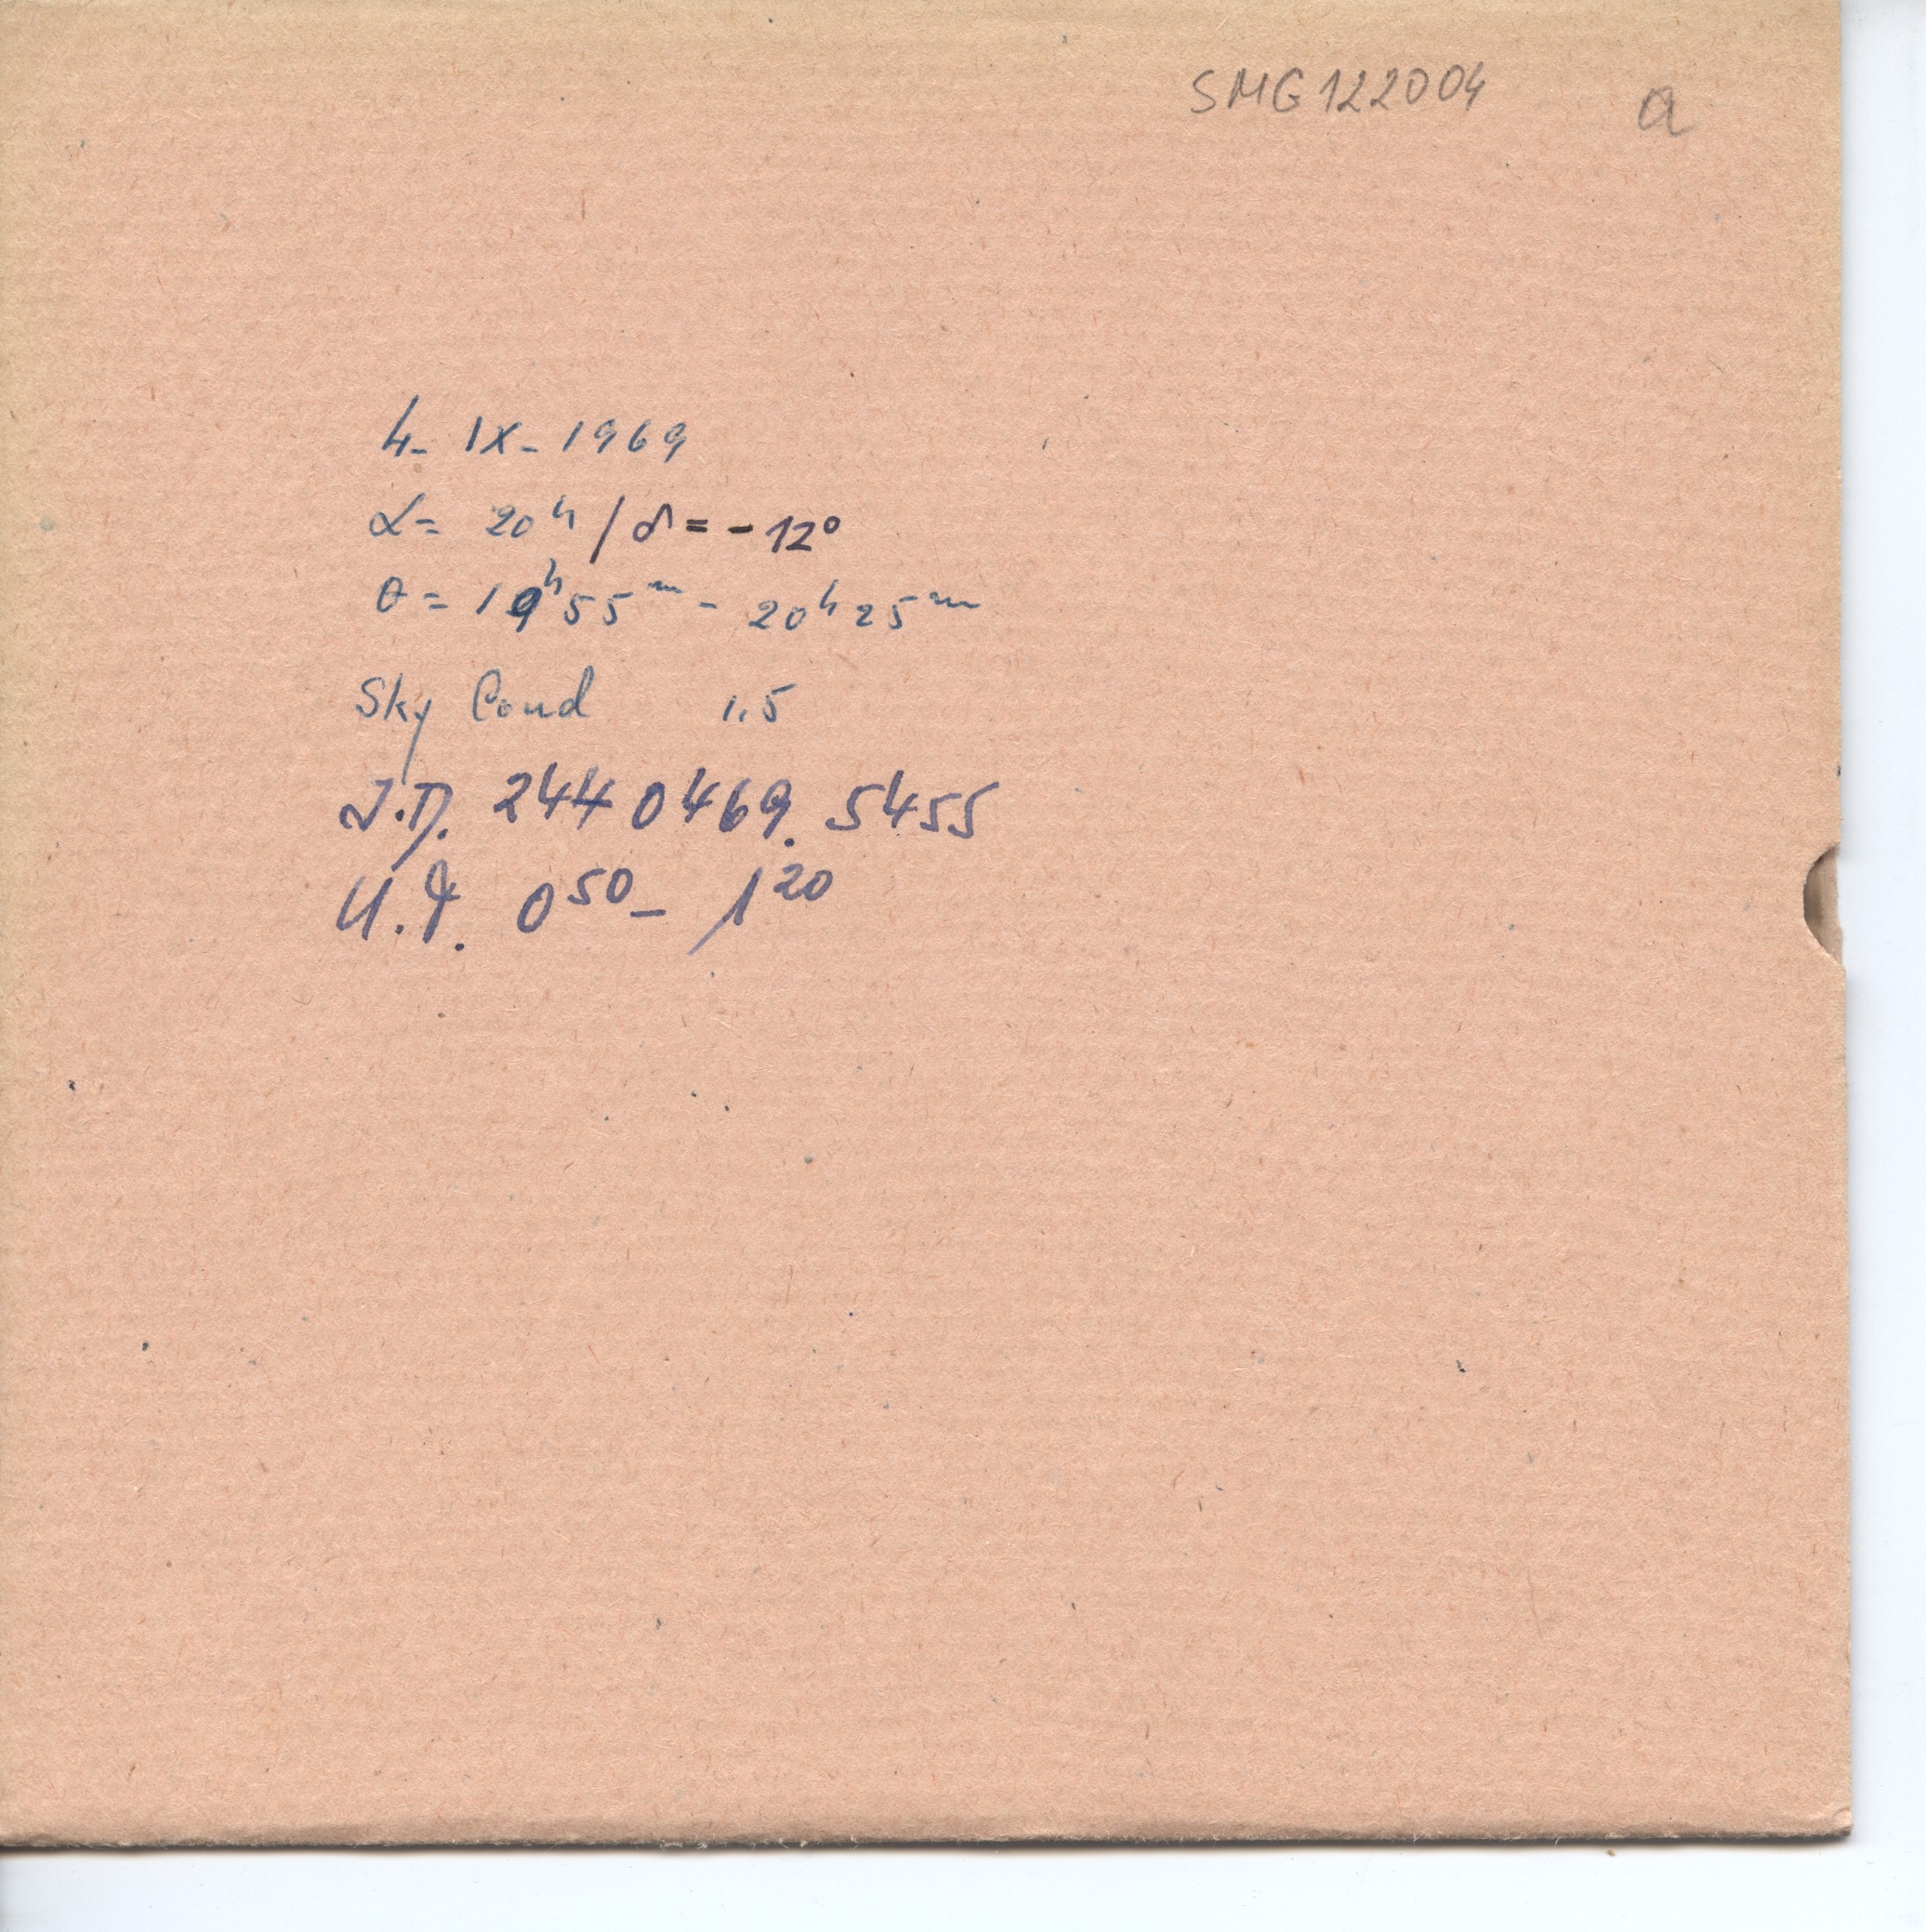 SMG122004 a
4- IX- 1969
α= 20ʰ / δ = - 12°
θ = 19ʰ55ᵐ - 20ʰ25ᵐ
Sky Cond 1.5
J.D. 2440469.5455
U.T. 0⁵⁰- 1²⁰